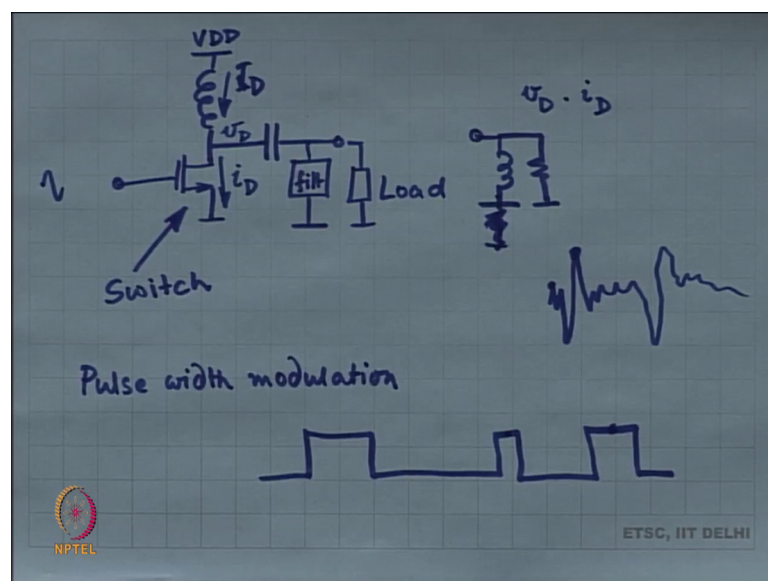 VDD
I_D
v_D
i_D
filt
Load
v_D · i_D
Switch
Pulse width modulation
NPTEL
ETSC, IIT DELHI